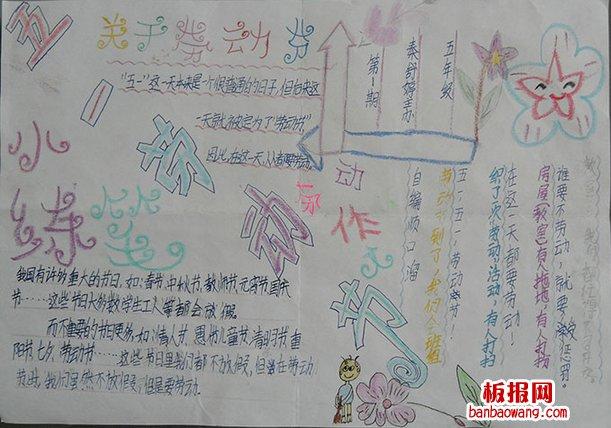 五一劳动节
关于劳动节
"五一"这一天本来是一个很普通的日子,但后来这
一天就被定为了"劳动节"
因此,在这一天人人都要劳动。
第一期
秦舒婷主办
五年级
小
动
作
自编顺口溜
五一五一,劳动节!
劳动节到了,我们会班组
织了次劳动活动,有人打扫
在这一天都要劳动!
房屋(教室)有人拖地,有人扫
谁要不劳动,就要被惩罚。
我国有许多重大的节日,如:春节、中秋节、教师节、元宵节、国庆
节……这些节日大多数学生工人等都会放假
而不重要的节日更多,如:情人节、愚人节、儿童节、清明节、重
阳节、七夕、劳动节……这些节日里我们都不放假,但当在劳动
节时,我们虽然不放假,但是要劳动。
板报网
banbaowang.com